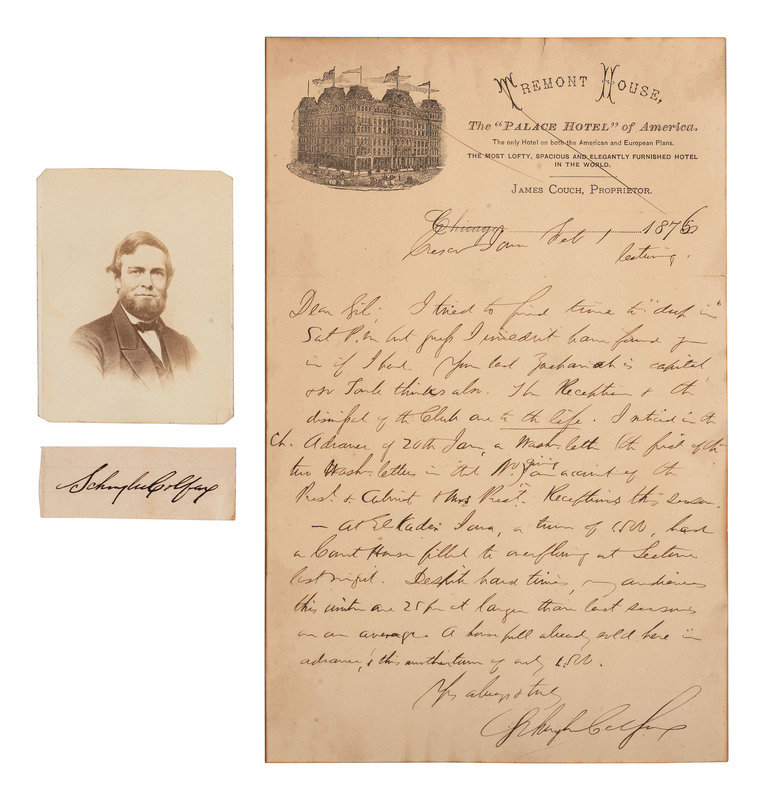 TREMONT HOUSE,
The "PALACE HOTEL" of America.
The only Hotel on both the American and European Plans.
THE MOST LOFTY, SPACIOUS AND ELEGANTLY FURNISHED HOTEL
IN THE WORLD.
JAMES COUCH, PROPRIETOR.
Chicago 1876
Cresco Iowa Feb 1
lecturing.
Dear Gil: I tried to find time to "drop in"
Sat P.M. but guess I wouldn't have found you
in if I had. Your last Zachariah is capital,
& so thinks also. The Reception & the
of the Club are to the life. I noticed in the
Ch. Advance of 20th Jan, a Wash. letter (the first of the
two Wash. letters in that No. giving an account of the
Prest. & Cabinet & Mrs Prest. Receptions this season.
— At Elkader Iowa, a town of 1500, had
a Court House filled to overflowing at Lecture
last night. Despite hard times, my audiences
this winter are 25 per ct larger than last season
on an average. A house full already sold here in
advance, & this another town of only 1500.
Yrs always & truly
Schuyler Colfax
Schuyler Colfax